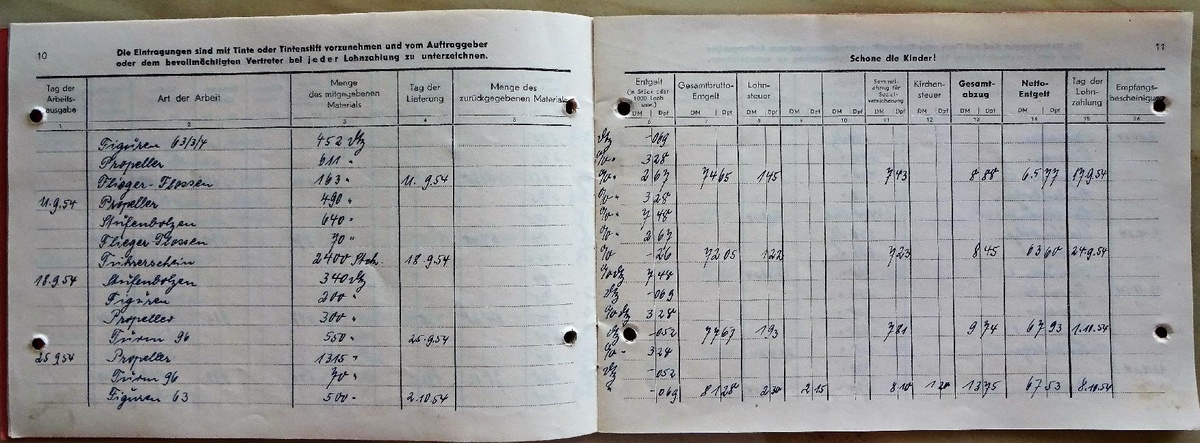 10
Die Eintragungen sind mit Tinte oder Tintenstift vorzunehmen und vom Auftraggeber
oder dem bevollmächtigten Vertreter bei jeder Lohnzahlung zu unterzeichnen.
Tag der Arbeitsausgabe | Art der Arbeit | Menge des mitgegebenen Materials | Tag der Lieferung | Menge des zurückgegebenen Materials
1 2 3 4 5
Figüren 63/3/4 452 Btz
Propeller 611 "
Flieger-Flossen 163 " 11.9.54
11.9.54 Propeller 490 "
Stufenbolzen 640 "
Flieger-Flossen 70 "
Führerschein 2400 Stck. 18.9.54
18.9.54 Stufenbolzen 340 Btz
Figüren 200 "
Propeller 300 "
Turm 96 550 " 25.9.54
25.9.54 Propeller 1315 "
Turm 96 70 "
Figüren 63 500 " 2.10.54
11
Schone die Kinder!
Entgelt | Gesamtbrutto-Entgelt | Lohnsteuer | Kirchensteuer | Gesamtabzug | Netto-Entgelt | Tag der Lohnzahlung | Empfangsbescheinigung
DM Dpf DM Dpf DM Dpf DM Dpf DM Dpf DM Dpf DM Dpf DM Dpf DM Dpf
6 7 8 9 10 11 12 13 14 15 16
-069
3 28
2 67 74 65 1 45 7 43 8 88 65 77 17.9.54
3 28
7 48
2 67
-26 72 05 1 22 7 23 8 45 63 60 24.9.54
7 48
-069
3 28
-052 77 67 1 93 7 81 9 74 67 93 1.10.54
3 24
-052
-069 81 28 2 30 2 15 8 10 1 20 13 75 67 53 8.10.54